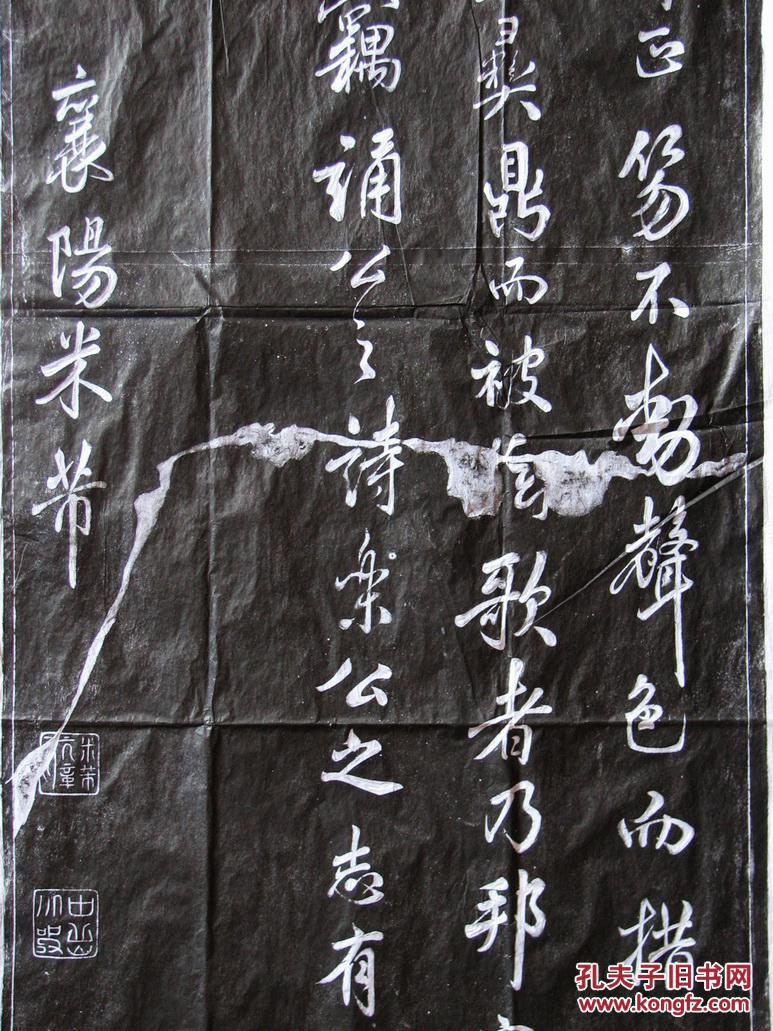 正笏不動聲色而措
彝鼎而被絃歌者乃邦
竊誦公之詩樂公之志有
襄陽米芾
米芾元章
孔夫子旧书网
www.kongfz.com